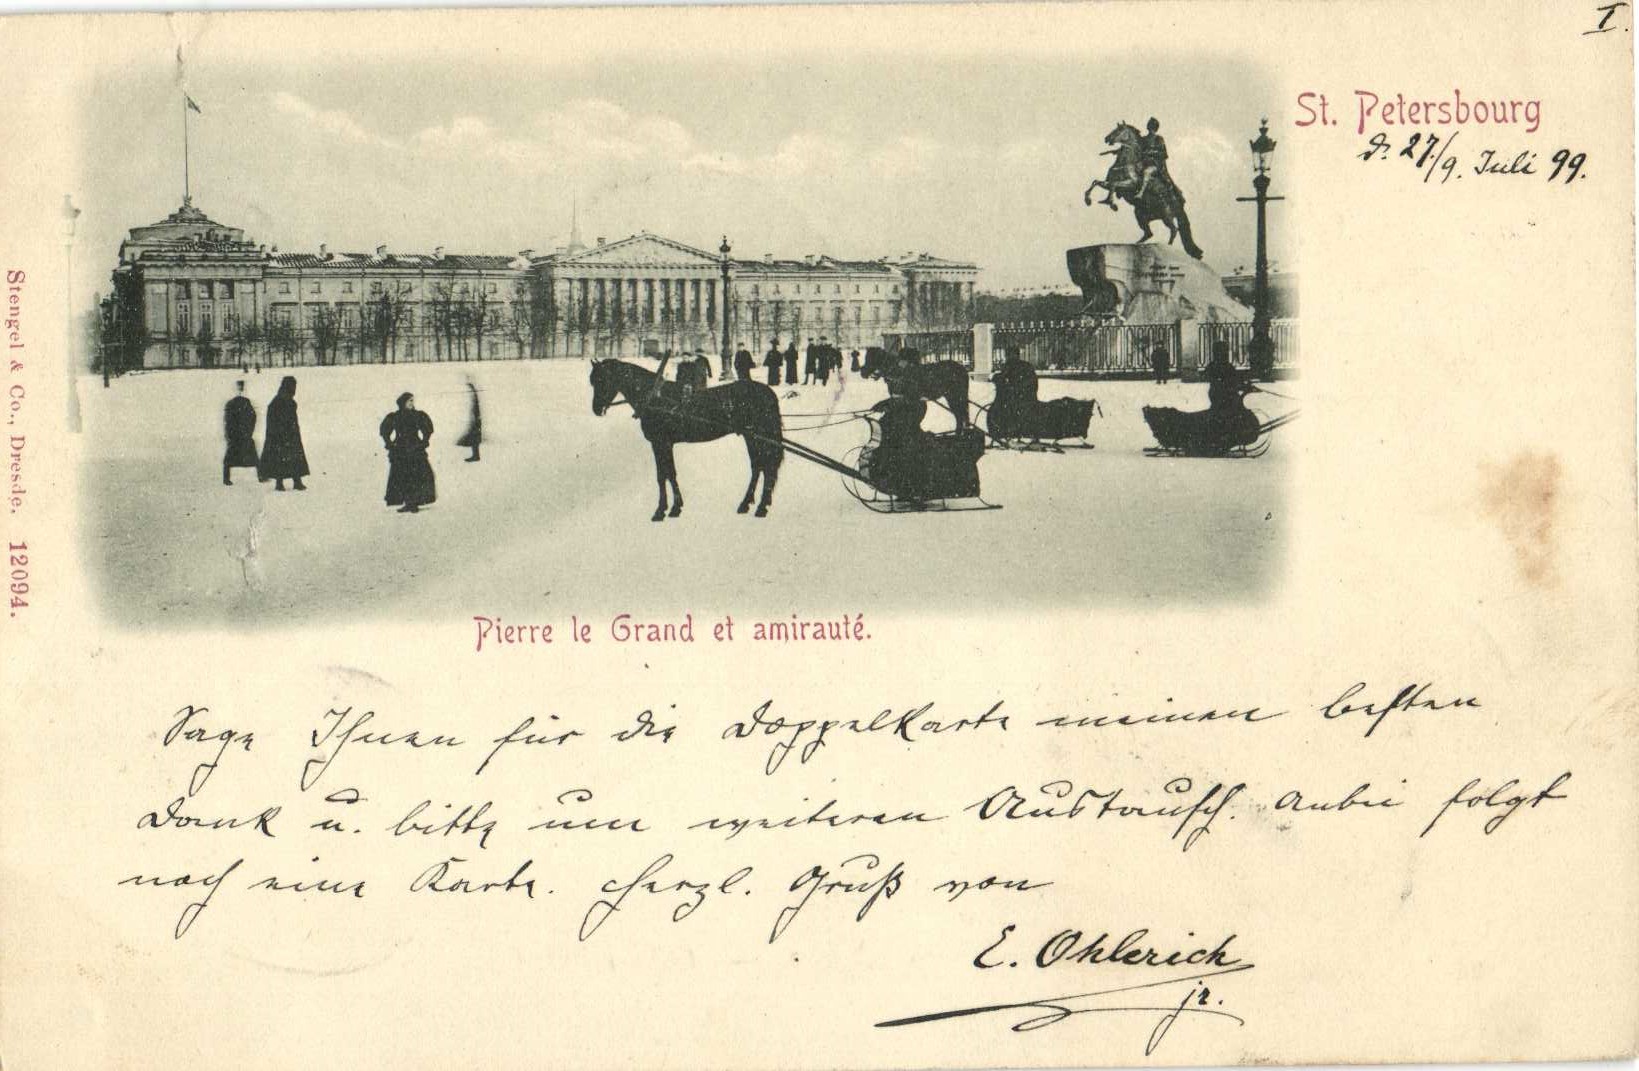 I.
St. Petersbourg
d. 27./9. Juli 99.
Stengel & Co., Dresde. 12094.
Pierre le Grand et amirauté.
Sage Ihnen für die Doppelkarte meinen besten
Dank u. bitte um weiteren Austausch. Anbei folgt
noch eine Karte. Herzl. Gruß von
E. Ohlerich
jr.